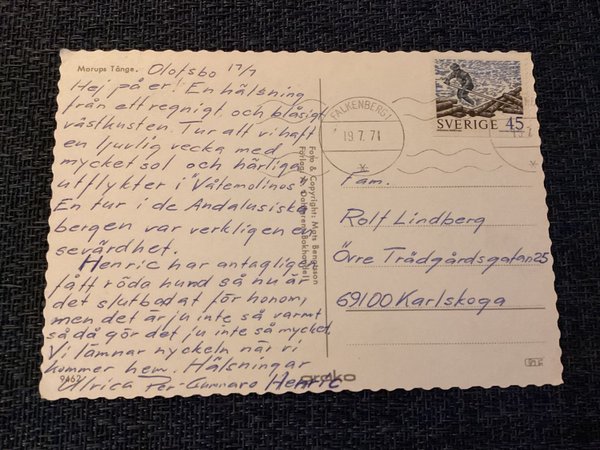 Morups Tånge. Olofsbo 17/7
Hej på er! En hälsning
från ett regnigt och blåsigt
västkusten. Tur att vi haft
en ljuvlig vecka med
mycket sol och härliga
utflykter i
En tur i de Andalusiska
bergen var verkligen en
sevärdhet.
Henric har antagligen
fått röda hund så nu är
det slutbadat för honom,
men det är ju inte så varmt
så då gör det ju inte så mycket.
Vi lämnar nyckeln när vi
kommer hem. Hälsningar
Ulrica Per-Gunnar o Henric
9462
Foto & Copyright: Mats Bengtsson
FALKENBERG 1
19.7.71
SVERIGE 45
Fam.
Rolf Lindberg
Övre Trädgårdsgatan 25
69100 Karlskoga